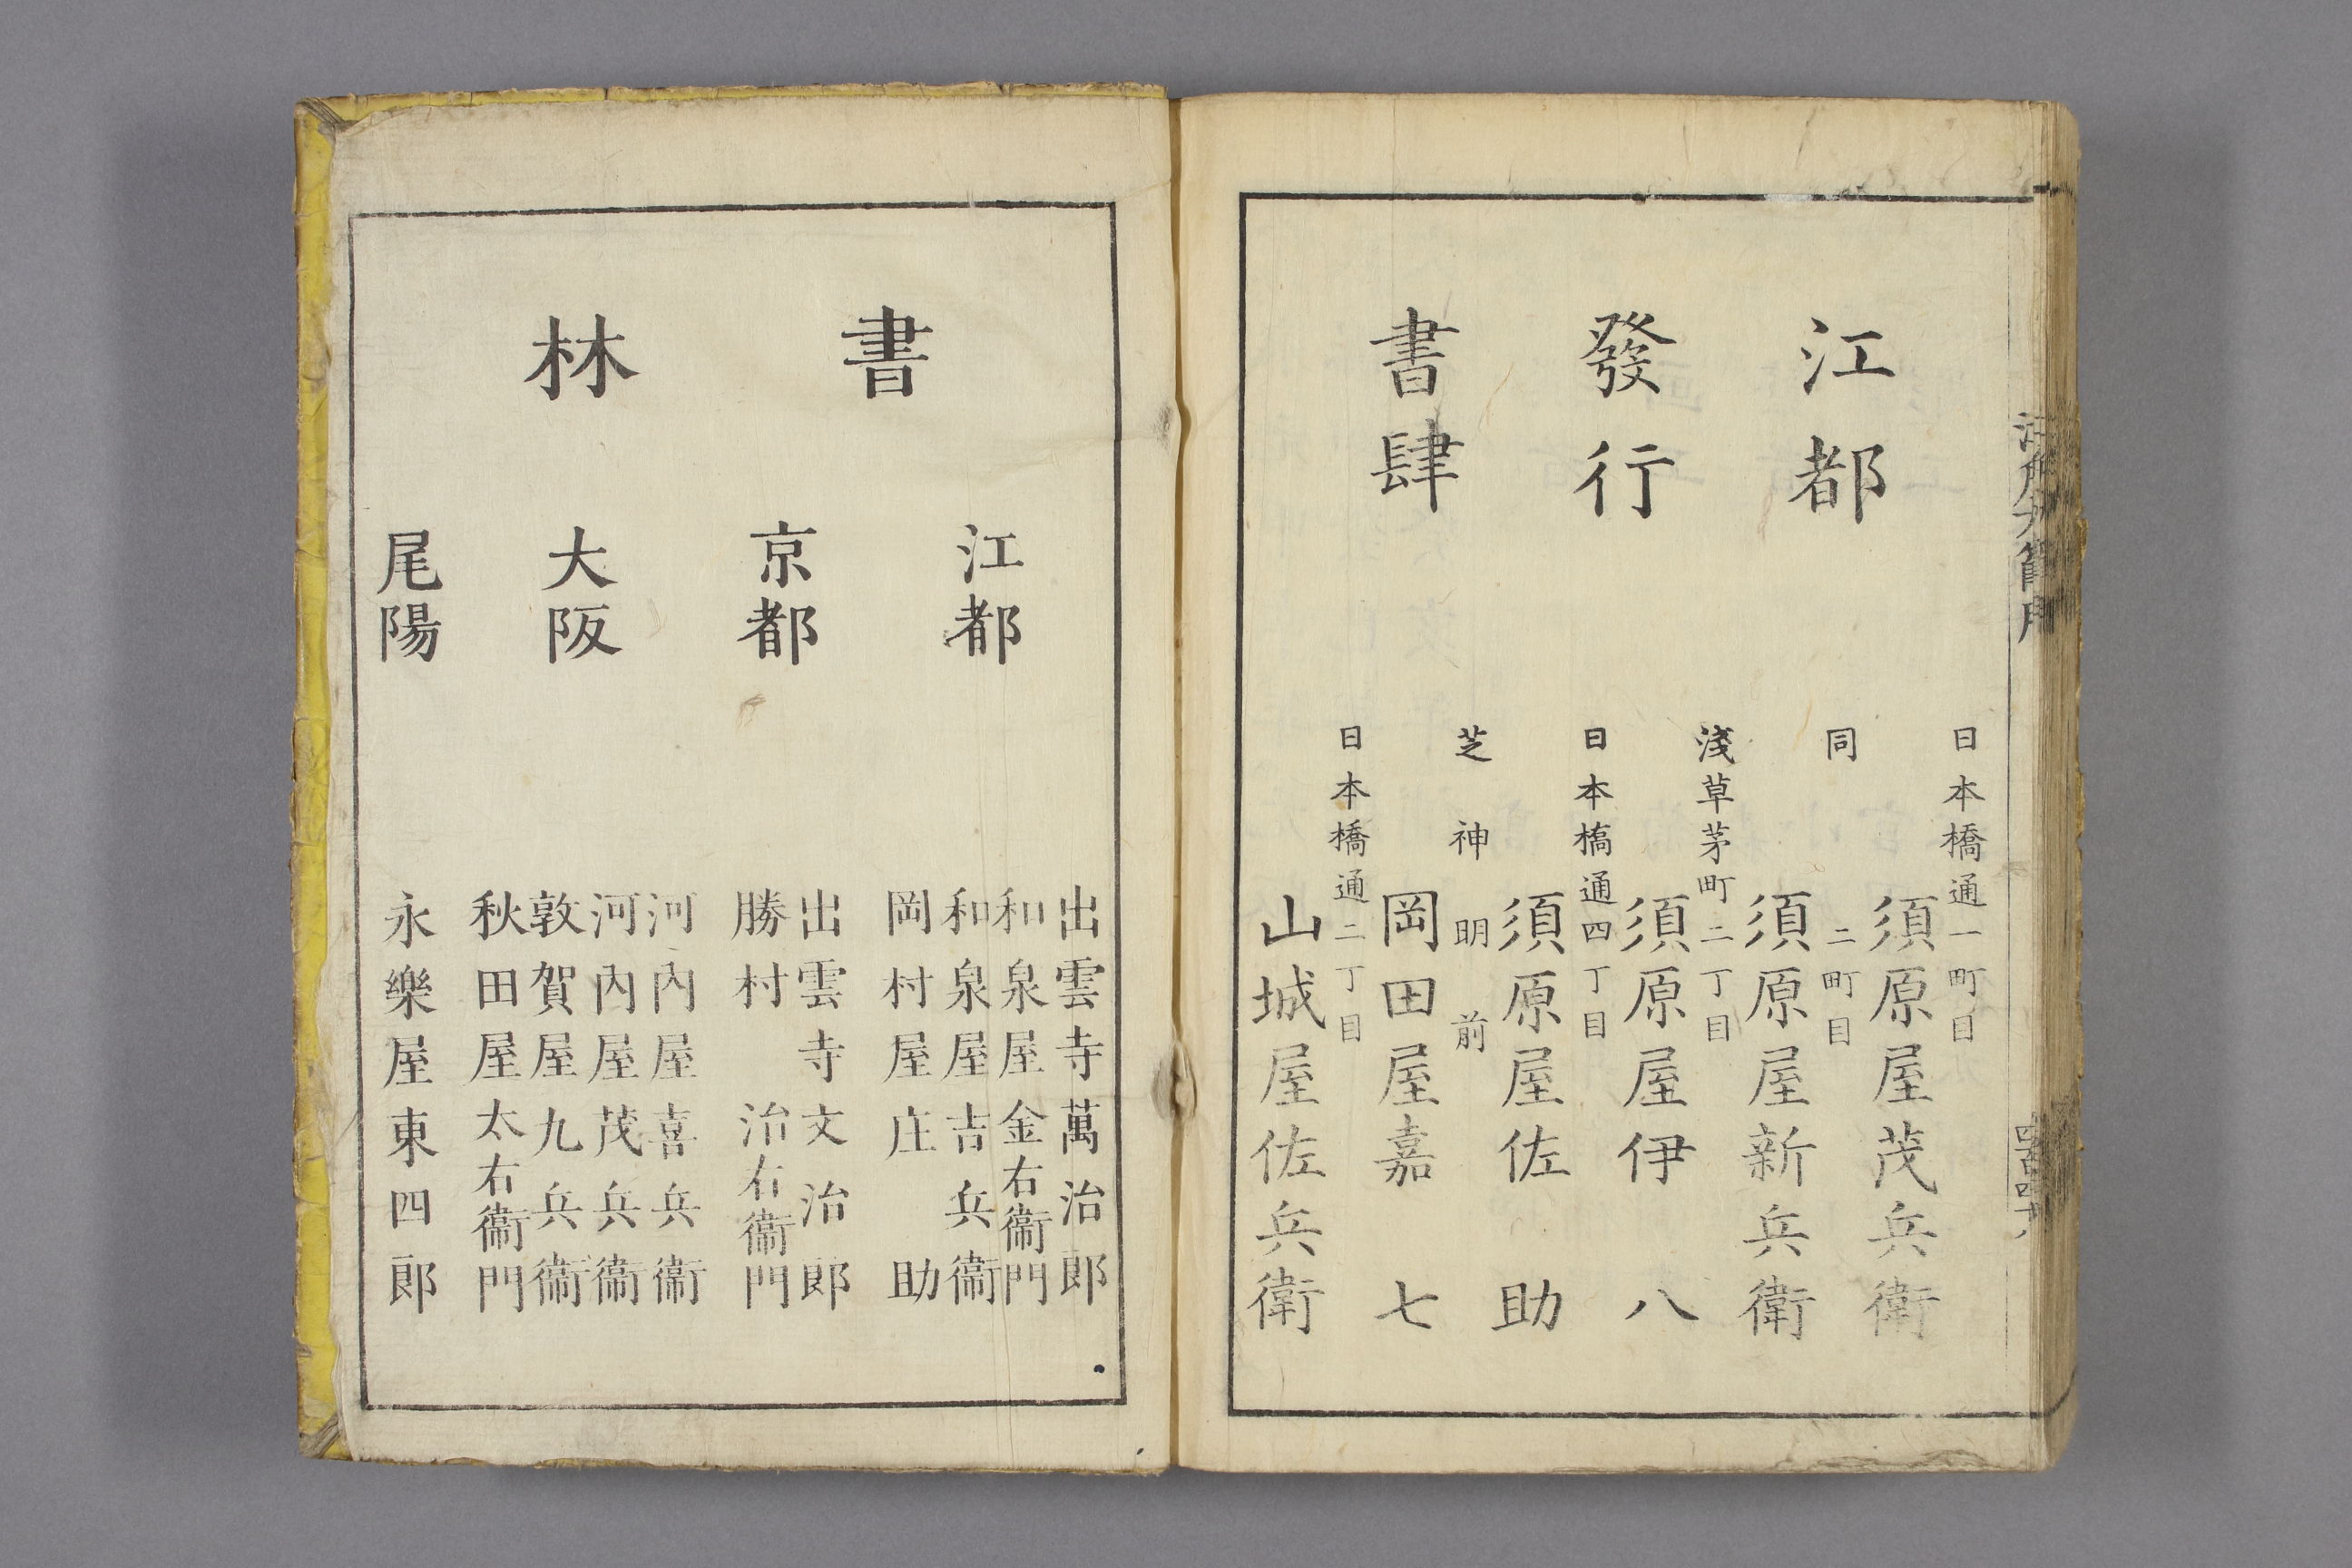 江都
發行
書肆
日本橋通一町目
須原屋茂兵衛
同二町目
須原屋新兵衛
淺草茅町二丁目
須原屋伊八
日本橋通四丁目
須原屋佐助
芝神明前
岡田屋嘉七
日本橋通二丁目
山城屋佐兵衛
書林
江都
出雲寺萬治郎
和泉屋金右衞門
和泉屋吉兵衞
岡村屋庄助
京都
出雲寺文治郎
勝村治右衞門
大阪
河內屋喜兵衞
河內屋茂兵衞
敦賀屋九兵衞
秋田屋太右衞門
尾陽
永樂屋東四郎